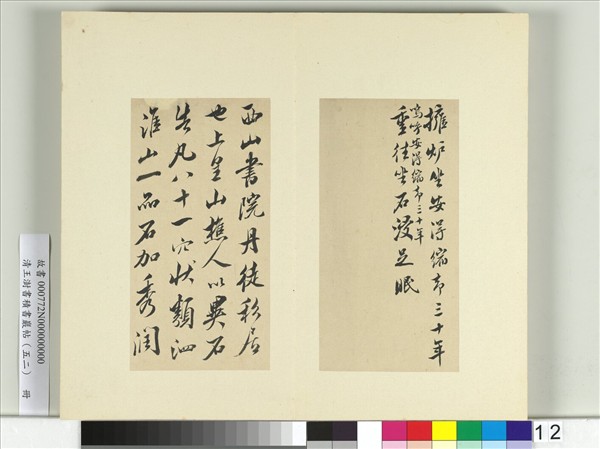 擁爐坐安得縮却三十年
嗚嗚安得縮却三十年
重往坐石浸足眠
西山書院丹徒私居
也上皇山樵人以異石
告凡八十一穴狀類泗
淮山一品石加秀潤
故書 000772N000000000
清王澍書積書巖帖（五二） 冊
12